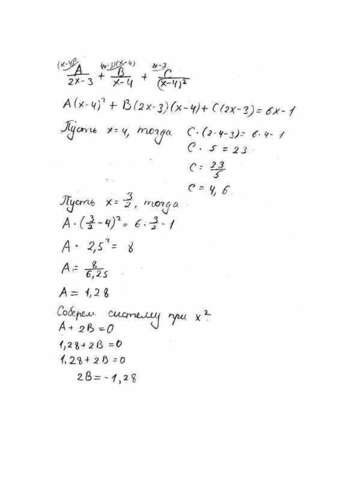 (x-4)² (2x-3)(x-4) 2x-3
A/(2x-3) + B/(x-4) + C/(x-4)²
A(x-4)² + B(2x-3)(x-4) + C(2x-3) = 6x-1
Пусть x=4, тогда C·(2·4-3) = 6·4-1
C · 5 = 23
C = 23/5
C = 4,6
Пусть x = 3/2, тогда
A·(3/2-4)² = 6·3/2-1
A · 2,5² = 8
A = 8/6,25
A = 1,28
Соберем систему при x²:
A + 2B = 0
1,28 + 2B = 0
1,28 + 2B = 0
2B = -1,28